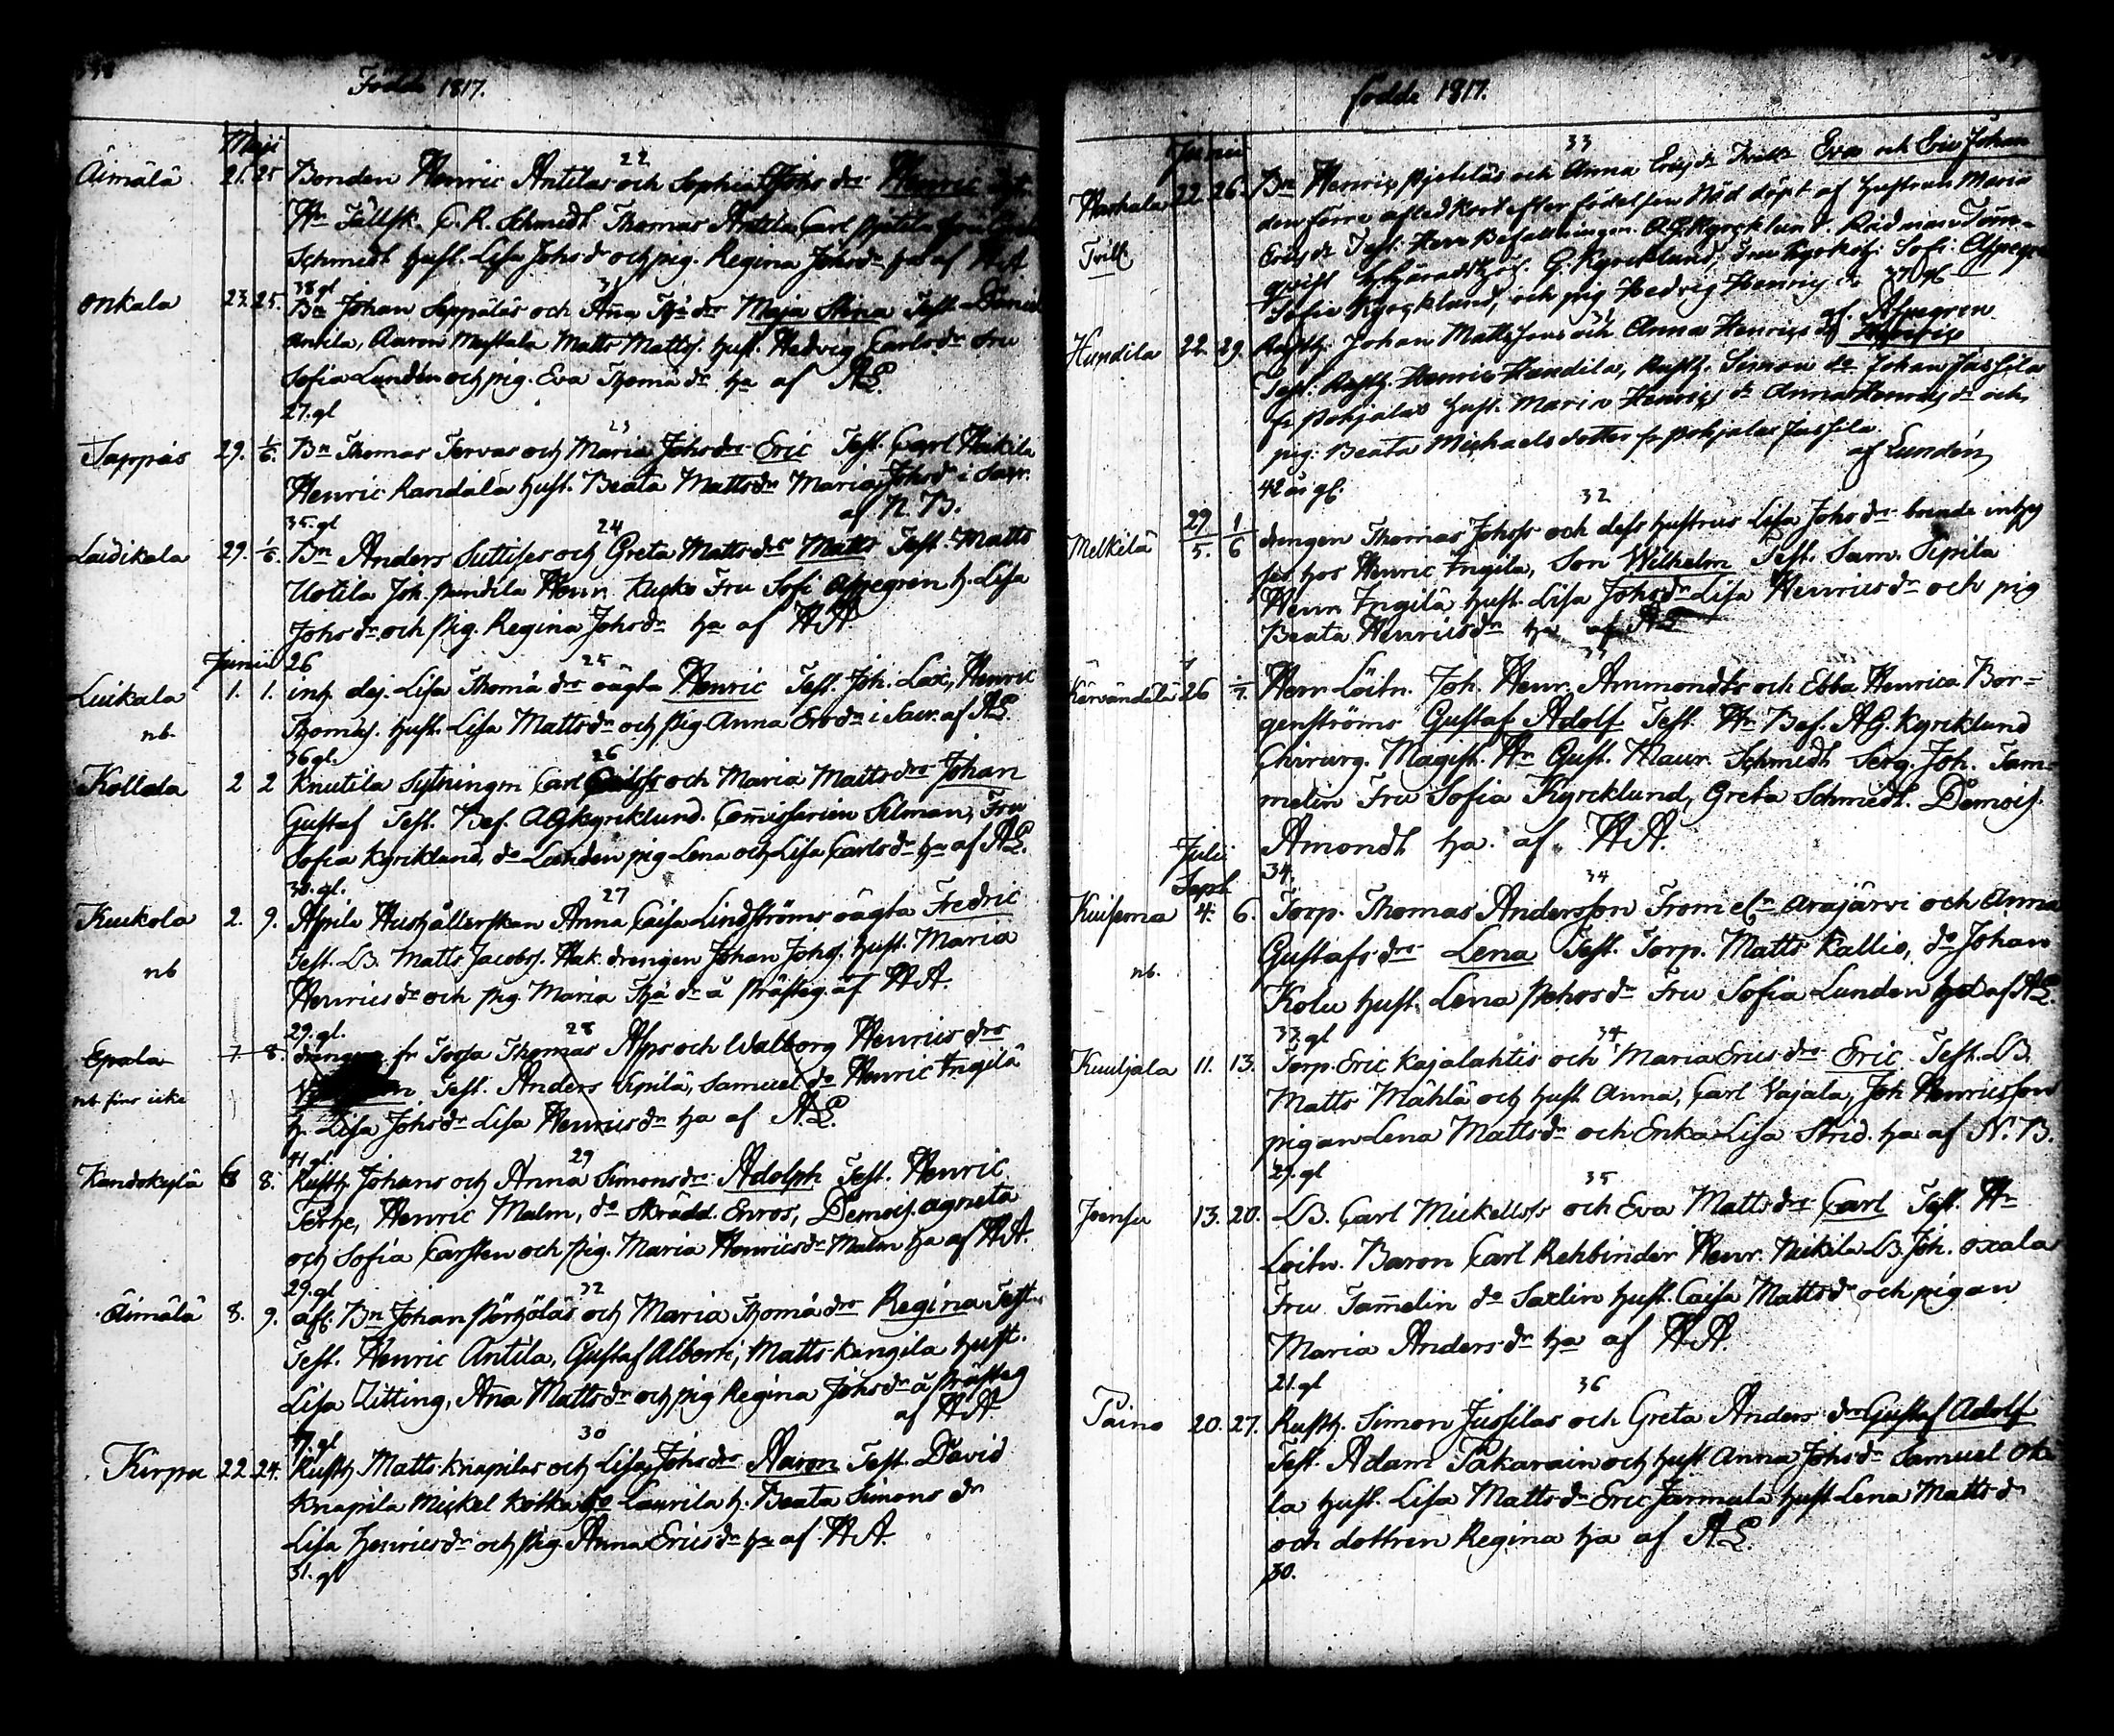 Födde 1817.
Maji
22
Äimälä 21. 25 Bonden Henric Antilas och Sophia Johs drs Henric
Hr Fältsk. C. R. Schmidt Thomas Antila, Carl
Schmidt hust. Lisa Johs dr och pig. Regina Johs dr ha af HA
38 gl
31
onkala 23. 25. Bn Johan Seppäläs och Ana Thom drs Maja Stina Test. Daniel
Antila, Aaron Mattala Matts Mattss. hust. Hedvig Carls dr Fru
Sofia Lunden och pig. Eva Thomä dr ha af AL.
27. gl
23
Sappas 29. 1/6. Bn Thomas Tervas och Maria Johs drs Eric Test. Carl Heikila
Henric Randala hust. Beata Matts dr Maria Johs dr i Savr.
af N. B.
35. gl
24
Laidikala 29. 1/6. Bn Anders Suttises och Greta Matts drs Matts Test. Matts
Uotila Joh. pundila Henr. Kusko Fru Sofi Aspegren h. Lisa
Johs dr och pig. Regina Johs dr ha af HA.
Junii 26
25
Luikala 1. 1. inh. dej. Lisa Thomä drs oägta Henric Test. Joh. Lax, Henric
nb. Thomäs. hust. Lisa Matts dr och pig Anna Ers dr i Savr. af AL.
36 gl.
26
Kollola 2 2 Knutila Sytningm Carl och Maria Matts drs Johan
Gustaf Test. Bef. AG Kyrklund. Comissarien Silman, Fru
Sofia Kyrklund, do Lunden pig Lena och Lisa Carls dr ha af AL.
30. gl.
27
Kuckola 2. 9. Aspila Hushållerskan Anna Caisa Lindströms oägta Fredric
nb Test. LB. Matts Jacobss. Hak. drengen Johan Johss. hust. Maria
Henrics dr och pig. Maria Thä dr å prästeg. af HA.
29. gl.
28
Epala 7. 8. drengen fr Torsa Thomas Alps och Walborg Henrics drs
nb. fins icke Test. Anders Sipilä, Samuel do Henric Ingilä
h. Lisa Johs dr Lisa Henrics dr ha af AL.
41 gl.
29
Kandokylä 8 8. Rusth. Johans och Anna Simons drs Adolph Test. Henric
Terhe, Henric Malm, do Skrädd. Enros, Demois. Agneta
och Sofia Carsten och pig. Maria Henrics dr Malm ha af HA.
29. gl
32
Äimälä 8. 9. afl. Bn Johan Pörhöläs och Maria Thomä drs Regina Test.
Test. Henric Antila, Gustaf Albert, Matts Kangila hust.
Lisa Zitting, Ana Matts dr och pig Regina Johs dr å prästeg
af HA
gl
30
Kirpu 22. 24. Rusth Matts Knapilas och Lisa Johs drs Aaron Test. David
Knapila Mickel Kotka do Laurila h. Beata Simons dr
Lisa Henrics dr och pig. Anna Erics dr ha af HA.
31. gl
födde 1817.
Junii
33
Haihala 22. 26. Bn Henrics och Anna Ericss dr Twill. Eva och Eric Johan
den förre afled kort efter födelsen Nöd döpt af hustrun Maria
Twill. Ericss dr Test. Herr Befallningsm. AG Kyrcklund. Rådman
G. Kyrcklund, Fru Sofi. Aspegren
Sofia Kyrcklund, och pig Hedvig Henrics dr 37 gl
af. Aspegren
31
Hundila 22. 29. Rusth. Johan Mattssons och Anna Henrics dr Henric
Test. Rusth. Henric Hundila, Rusth. Simon do Johan Jussila
fr. Pohjalas hust. Maria Henrics dr Anna Henrics dr och
pig: Beata Michaelsdotter fr Pohjalas Jussila.
af Lunden
42 år gl.
32
Melkilä 29/5. 1/6 drengen Thomas Johss och dess hustrus Lisa Johs dr boende inhy
ses hos Henric Ingila, Son Wilhelm Test. Sam. Sipila
Henr. Ingilä hust. Lisa Johs dr Lisa Henrics dr och pig
Beata Henrics dr ha af AL
33
Kärvändälä 26 1/7. Herr Löitn. Joh. Henr. Ammondts och Ebba Henrica Bor=
genströms Gustaf Adolf Test. Hr Bef. AG. Kyrklund
Chirurg. Magist. Hr Gust. Maur. Schmidt Serg. Joh. Tam
melin Fru Sofia Kyrcklund, Greta Schmidt. Demois.
Amondt ha. af. HA.
34.
Julii
Sept
34
Kuisema 4. 6. Torp. Thomas Andersson From el. Arajärvi och Anna
Gustafs drs Lena Test. Torp. Matts Kallio, do Johan
nb. Kolu hust. Lena Pehrs dr Fru Sofia Lunden ha af AL.
33. gl
34
Kuuljala 11. 13. Torp. Eric Kajalahtis och Maria Erics drs Eric Test. LB.
Matts Mähla och hust. Anna, Carl Vajala, Joh Henricsson
pigan Lena Matts dr och Erika Lisa Strid. ha af N. B.
29. gl
35
Joensu 13. 20. LB. Carl Mickelss och Eva Matts drs Carl Test. Hr
Loitn. Baron Carl Rehbinder Henr. Nikila LB. Joh. oxala
Fru Tamelin do Saxlin hust. Caisa Matts dr och pigan
Maria Anders dr ha af HA.
21. gl
36
Paino 20. 27. Rusth. Simon Jussilas och Greta Anders drs Gustaf Adolf
Test. Adam Pakarain och hust Anna Johs dr Samuel Ok
la hust. Lisa Matts dr Eric Jarmula hust Lena Matts dr
och dottren Regina ha af AL.
30.